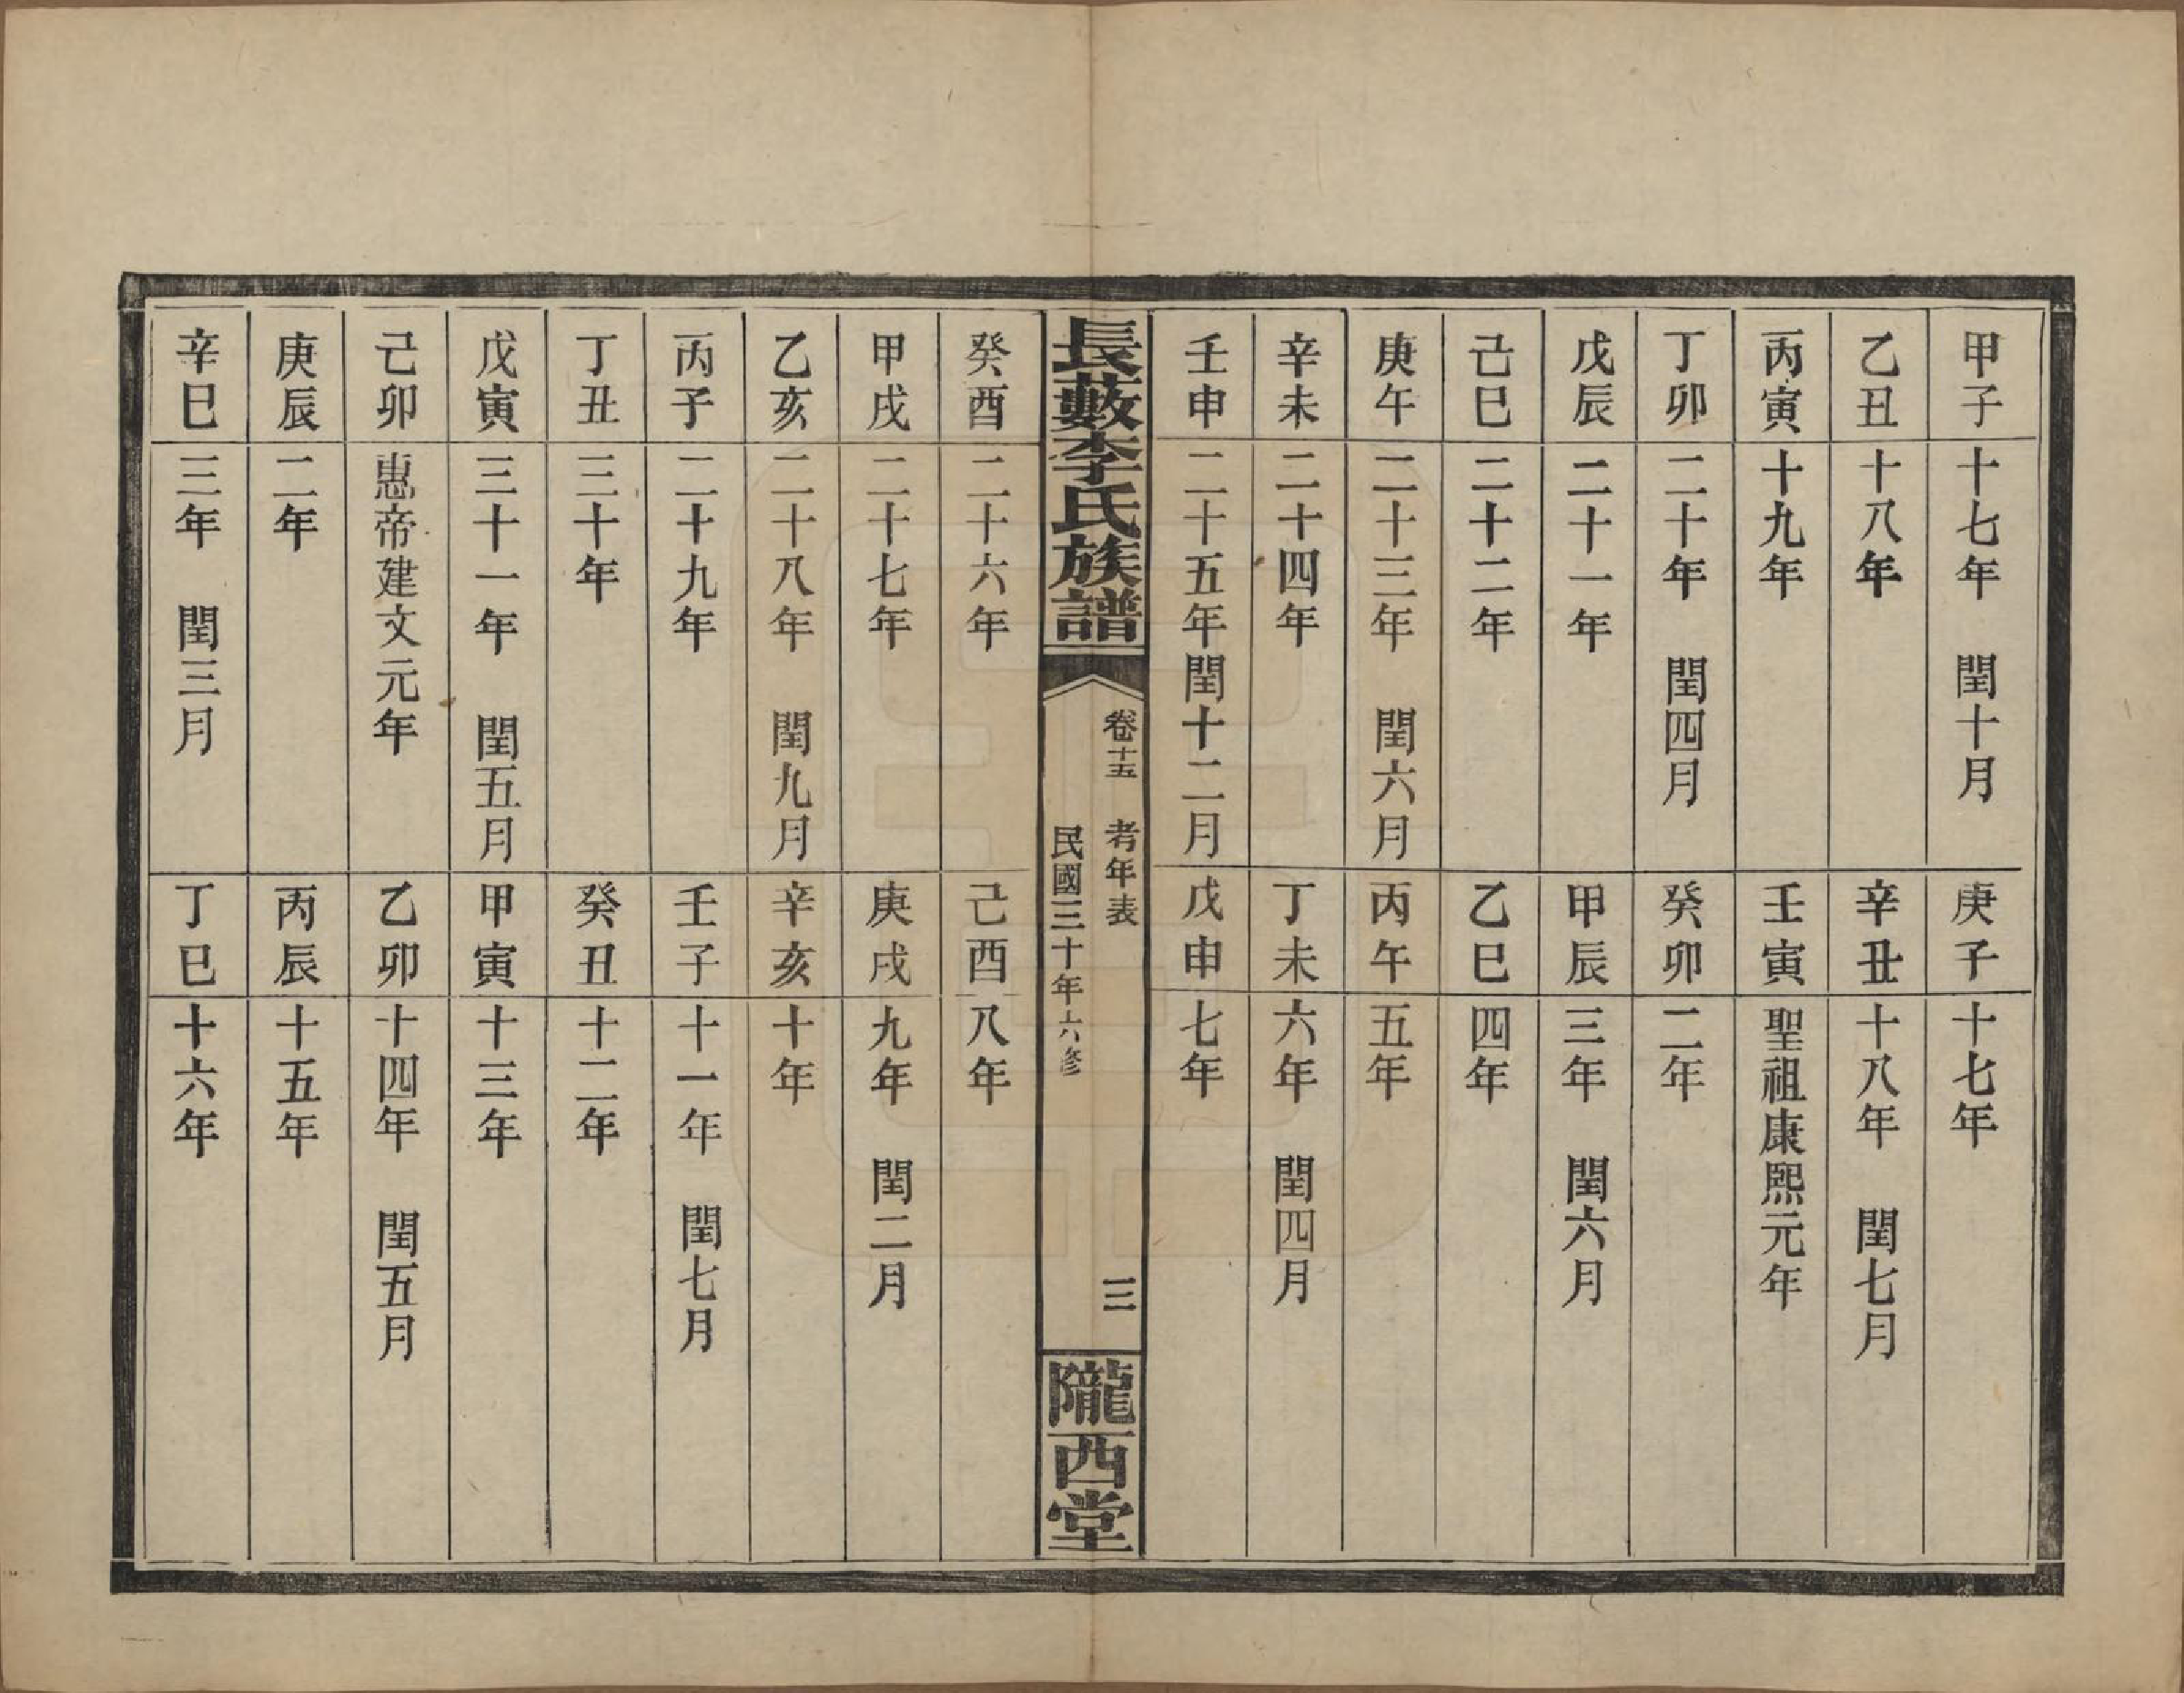 甲子 十七年 閏十月 庚子 十七年
乙丑 十八年 辛丑 十八年 閏七月
丙寅 十九年 壬寅 聖祖康熙元年
丁卯 二十年 閏四月 癸卯 二年
戊辰 二十一年 甲辰 三年 閏六月
己巳 二十二年 乙巳 四年
庚午 二十三年 閏六月 丙午 五年
辛未 二十四年 丁未 六年 閏四月
壬申 二十五年閏十二月 戊申 七年
長藪李氏族譜 卷十五 考年表 三
民國三十年六修
隴西堂
癸酉 二十六年 己酉 八年
甲戌 二十七年 庚戌 九年 閏二月
乙亥 二十八年 閏九月 辛亥 十年
丙子 二十九年 壬子 十一年 閏七月
丁丑 三十年 癸丑 十二年
戊寅 三十一年 閏五月 甲寅 十三年
己卯 惠帝建文元年 乙卯 十四年 閏五月
庚辰 二年 丙辰 十五年
辛巳 三年 閏三月 丁巳 十六年